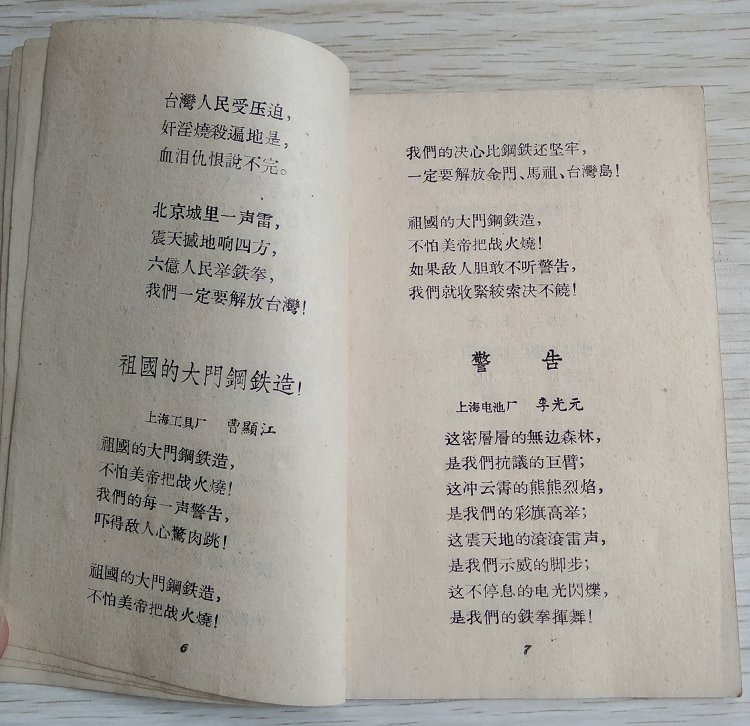 台灣人民受压迫，
奸淫燒殺遍地是，
血泪仇恨說不完。
北京城里一声雷，
震天撼地响四方，
六億人民举鉄拳，
我們一定要解放台灣！
祖國的大門鋼鉄造！
上海工具厂 曹顯江
祖國的大門鋼鉄造，
不怕美帝把战火燒！
我們的每一声警告，
吓得敌人心驚肉跳！
祖國的大門鋼鉄造，
不怕美帝把战火燒！
6
我們的决心比鋼鉄还坚牢，
一定要解放金門、馬祖、台灣島！
祖國的大門鋼鉄造，
不怕美帝把战火燒！
如果敌人胆敢不听警告，
我們就收緊絞索决不饒！
警 告
上海电池厂 李光元
这密層層的無边森林，
是我們抗議的巨臂；
这冲云霄的熊熊烈焰，
是我們的彩旗高举；
这震天地的滾滾雷声，
是我們示威的脚步；
这不停息的电光閃爍，
是我們的鉄拳揮舞！
7